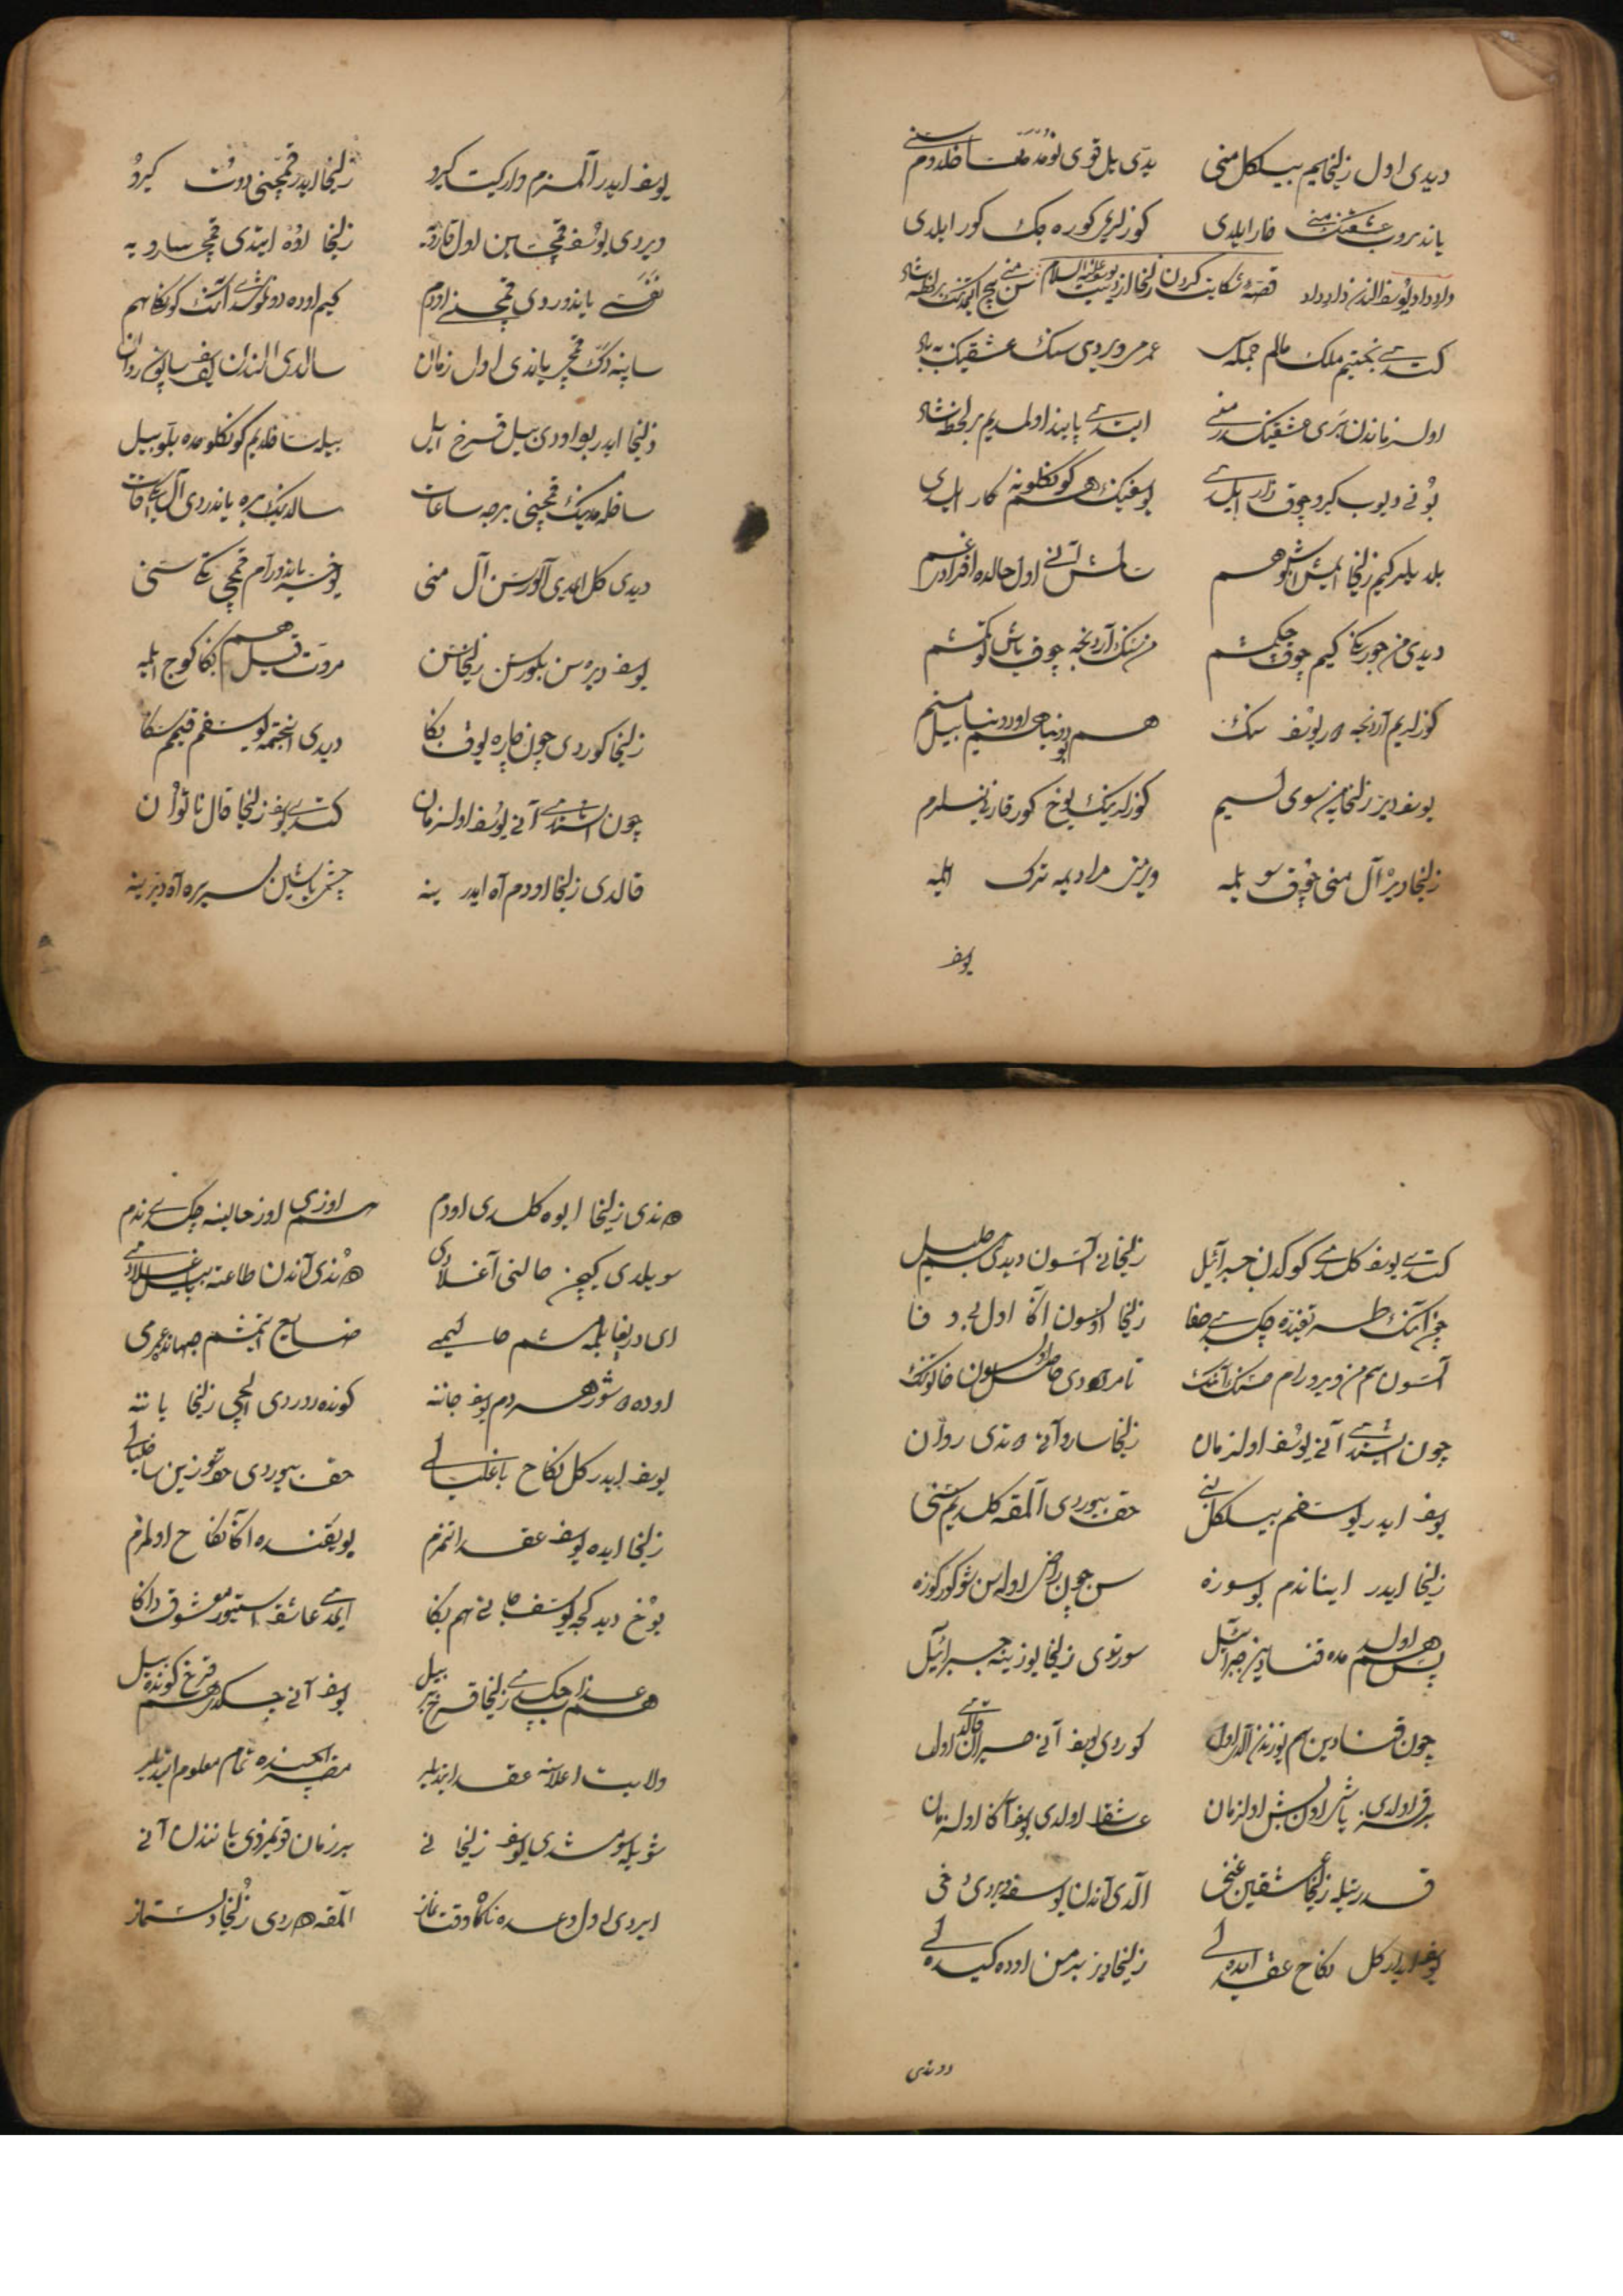 دیدی اول زلیخایم بیلکل منی یدی یل قوی نومدمت اخلدوم سنی
یاندیروب عشقنک منی قار ایلدی کوزلری کوره جک کور ایلدی
داد داد یوسف الندن داد داد قصهٔ شکایت کردن زلیخا از یوسف علیه السلام
کتدی تختیم ملک مالم جمله عمرم ویردی سنک عشقینک به باد
اول زماندن بری عشقینک منی ایتدی پابند اولمدیم بر لحظه شاد
بونی دیوب کرو چوق زار ایلدی یوسفینک هم کوکلونه کار ایلدی
بلدیلر کیم زلیخا ایمش اشبو هم آنی اول حالده
دیدی من جورکنی کیم چوق چکمشم من سنک آردنجه چوق یاش توکمشم
کوزلریم آردنجه در یوسف سنک هم بو دنیا هم او دنیا بیل منم
یوسف دیر زلیخا من سوی لسیم کوزلرینک یوخ کور قاری نیلرم
زلیخا دیر آل منی چوق سویلمه ویر منم مرادیمه ترک ایلمه
یوسف
یوسف ایدر آلمزم وار کیت کیرو زلیخا ایدر قمچینی دوت کیرو
ویردی یوسف قمچیسین اول قاریه زلیخا اوه ایتدی قمچی سارویه
نفسی یاندوردی قمچنی اودم کیم اوده دوتوشدی آنک کوکلی هم
ساپنه دک قمچی یاندی اول زمان سالدی الندن یوسف روان
زلیخا ایدر بو اودی بیل قرخ ایل بیله ساخلدیم کوکلومده بللو بیل
ساخلمدینک قمچینی بر جه ساعات سالدینک یره یاندردی الی قات
دیدی کل ایمدی آلورسن آل منی یوخسه یاندورام قمچی تک سنی
یوسف دیر سن بلورسن زلیخاسن مروت قیل هم بکا کوج ایلمه
زلیخا کوردی چون چاره یوق بکا دیدی انجتمه یوسفم قیمم سکا
چون اشتدی آنی یوسف اول زمان کتدی یوسف زلیخا قال ناتوان
قالدی زلیخا اودم آه ایدر ینه چشمی یاشین سیره آه دیر ینه
کتدی یوسف کلدی کوکدن جبرائیل زلیخانی آلسون دیدی جلیل
چون آنک طریقنده چکدی جفا زلیخا اولسون آکا اول با وفا
آلسون هم من ویرورام حسنک آنک تا مرادی حاصل اولسون خاتونک
چون اشتدی آنی یوسف اول زمان زلیخا سارو آنی دندی روان
یوسف ایدر یوسفم بیلکل بنی حق بیوردی آلمقه کلدیم سنی
زلیخا ایدر اینانمم بو سوزه سن چون راضی اولورسن شو کور کوزه
پس هم اولدمده قنادین جبرائیل سورتدی زلیخا یوزینه جبرائیل
چون قنادین هم یوزندن آلدی اول کوردی یوسف آنی حیران قالدی اول
قرخ اولدی یاشی اون بش اول زمان عاشق اولدی یوسف آکا اول زمان
قدرتیله زلیخا عشقین غنی آلدی آندن یوسفه ویردی دخی
یوسف ایدر کل نکاح عقد ایده لی زلیخا دیر نیه من اوده کیده لی
دوندی
دندی زلیخا ایوه کلدی اودم اوزی اوز حالینه چکدی ندم
سویلدی کیچن حالنی آغلادی دندی آندن طاعته بیل باغلادی
ای دریغا بلمه مشم حالیمی ضایع اتمشم جهانده عمرمی
اوده دوشر هر دم یوسف جاننه کونده روردی ایلچی زلیخا یاننه
یوسف ایدر کل نکاح باغلیالی حق بیوردی حق سوزین ساخلیالی
زلیخا ایده یوسف عقد اتمزم بو یقنده آکا نکاح اولمزم
یوخ دیدکجه یوسف جانی هم بکا ایمدی عاشق استیور معشوق داکا
هم عذاب چکدی زلیخا قرخ ییل یوسف آنی چکدی هم قرخ کونده بیل
ولایت اعلاسنه عقد ایتدیلر مصر ایچینده تمام معلوم ایتدیلر
شویله سومشدی یوسف زلیخانی بر زمان قویمزدی یانندن آنی
ایردی اول وعده ناکاه وقت نماز آلمقه دوردی زلیخا دستماز